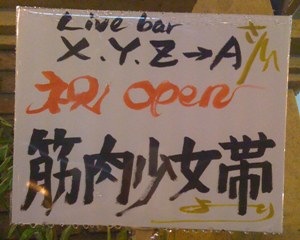 Live bar
X.Y.Z→A さん
祝 open
筋肉少女帯
より